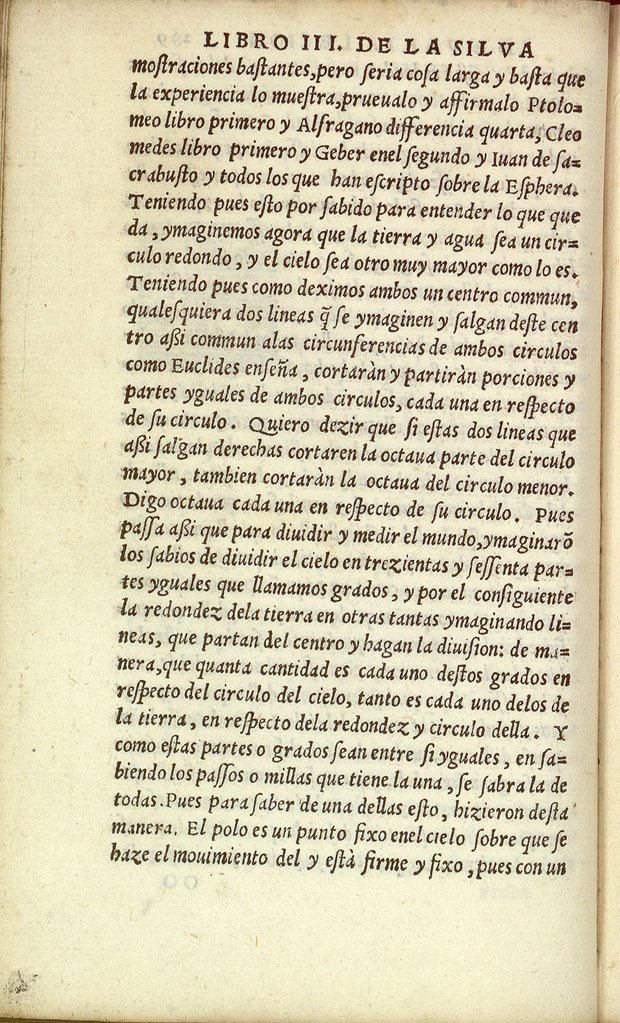 LIBRO III. DE LA SILVA
moſtraciones baſtantes,pero ſeria coſa larga y baſta que
la experiencia lo mueſtra,prueualo y affirmalo Ptolo=
meo libro primero y Alfragano differencia quarta, Cleo
medes libro primero y Geber enel ſegundo y Iuan de ſa=
crabuſto y todos los que han eſcripto ſobre la Eſphera.
Teniendo pues eſto por ſabido para entender lo que que
da, ymaginemos agora que la tierra y agua ſea un cir=
culo redondo, y el cielo ſea otro muy mayor como lo es.
Teniendo pues como deximos ambos un centro commun,
qualeſquiera dos lineas q̃ ſe ymaginen y ſalgan deſte cen
tro aßi commun alas circunferencias de ambos circulos
como Euclides enſeña, cortaràn y partiràn porciones y
partes yguales de ambos circulos, cada una en reſpecto
de ſu circulo. Quiero dezir que ſi eſtas dos lineas que
aßi ſalgan derechas cortaren la octaua parte del circulo
mayor, tambien cortaràn la octaua del circulo menor.
Digo octaua cada una en reſpecto de ſu circulo. Pues
paſſa aßi que para diuidir y medir el mundo,ymaginarõ
los ſabios de diuidir el cielo en trezientas y ſeſſenta par=
tes yguales que llamamos grados, y por el conſiguiente
la redondez dela tierra en otras tantas ymaginando li=
neas, que partan del centro y hagan la diuiſion: de ma=
nera,que quanta cantidad es cada uno deſtos grados en
reſpecto del circulo del cielo, tanto es cada uno delos de
la tierra, en reſpecto dela redondez y circulo della. Y
como eſtas partes o grados ſean entre ſi yguales, en ſa=
biendo los paſſos o millas que tiene la una, ſe ſabra la de
todas. Pues para ſaber de una dellas eſto, hizieron deſta
manera. El polo es un punto fixo enel cielo ſobre que ſe
haze el mouimiento del y eſtà firme y fixo, pues con un